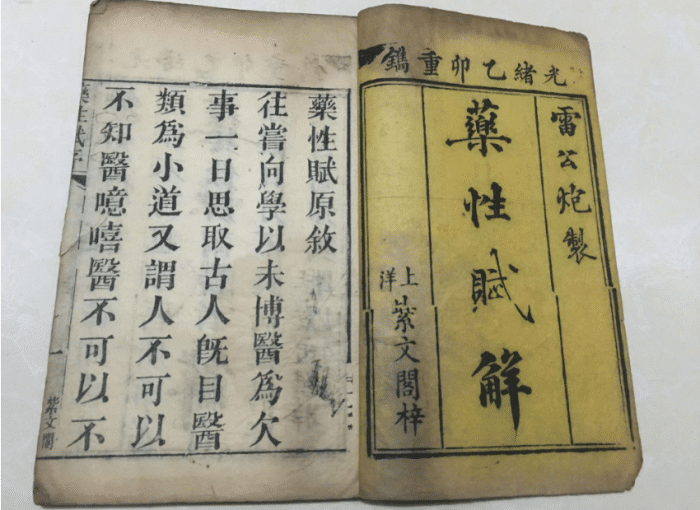 光緒乙卯重鐫
雷公炮製
藥性賦解
上洋
紫文閣梓
藥性賦原敘
往嘗向學以未博醫為欠
事一日思取古人旣目醫
類為小道又謂人不可以
不知醫噫嘻醫不可以不
藥性賦序
一
紫文閣